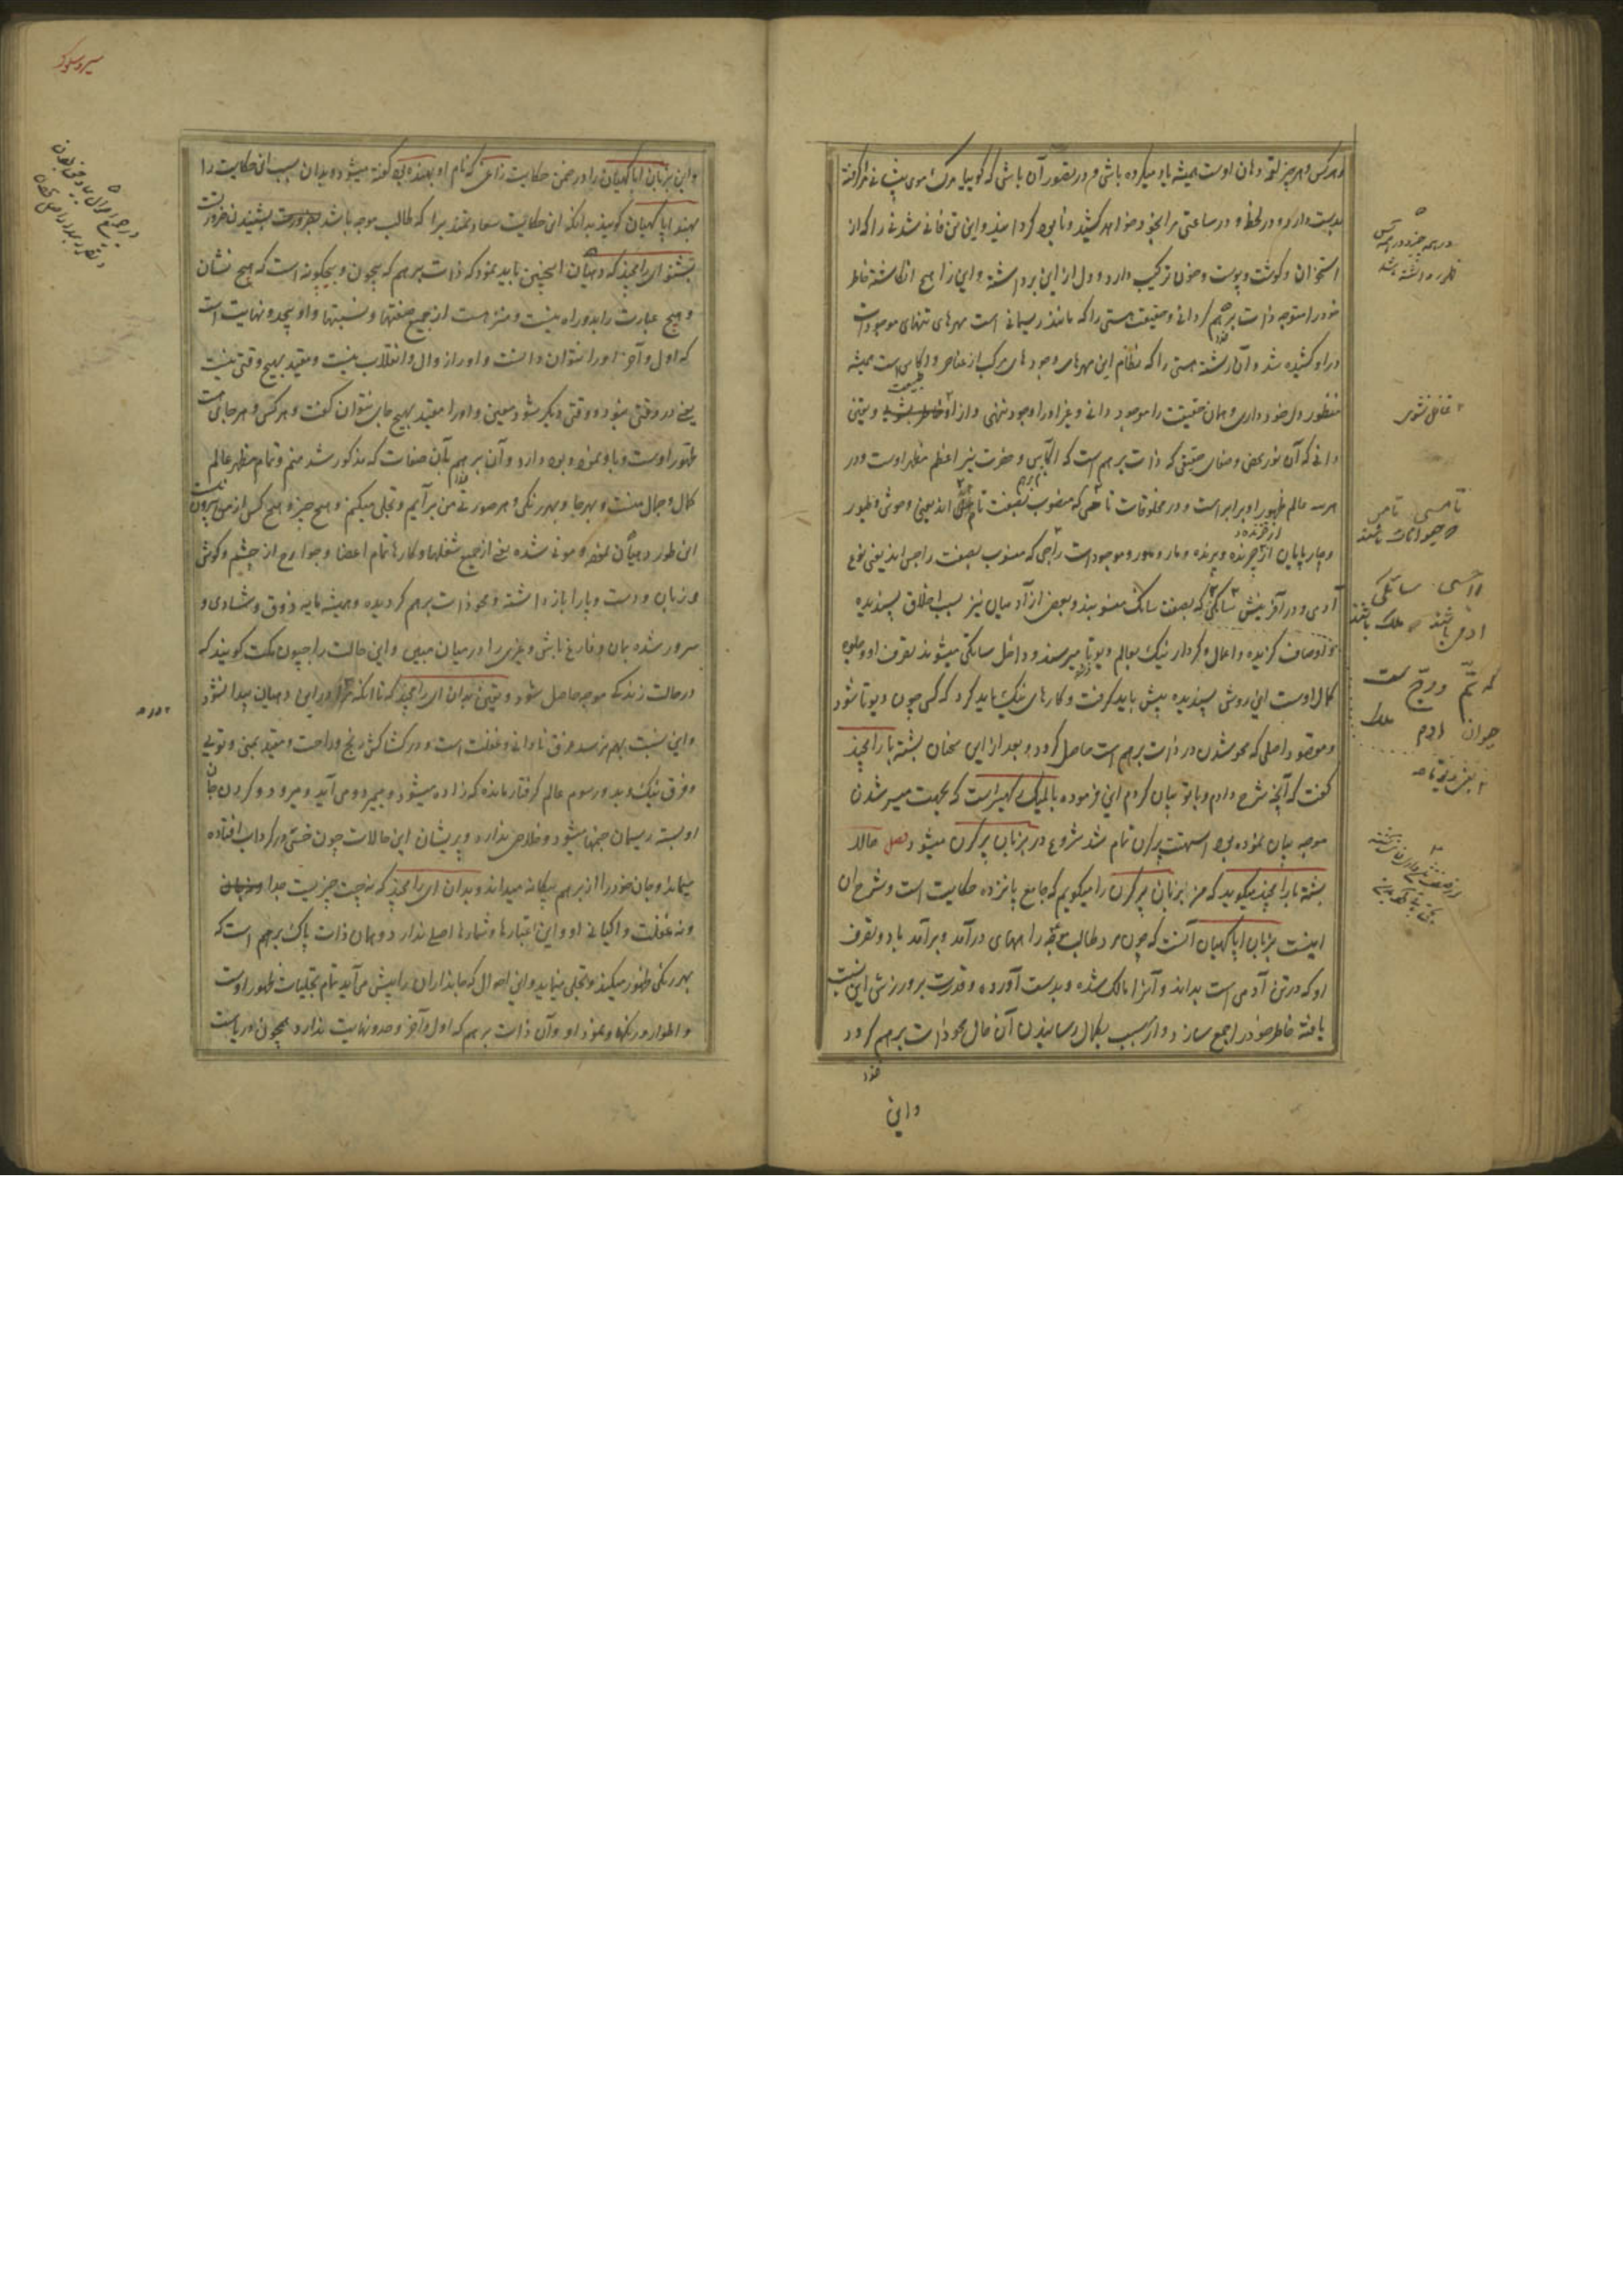 و هر کس و هر چیز لقمهٔ دهان اوست همیشه یاد میکرده باشی و در تصور آن باشی که گوییا مرگ موی پیشانی مرا گرفته
بدست دارد و در لحظه و در ساعتی مرا بخود خواهد کشید و نابود گردانید و این تن فانی شدنی را که از
استخوان و گوشت و پوست و خون ترکیب دارد و دل از این برداشته و این را هیچ انگاشته خاطر
خود را متوجه ذات برهم گردانی و حقیقت هستی را که مانند ریسمانی است مهرهای تنهای موجودات
در او کشیده شد و آن رشته هستی را که نظام این مهرهای وجودهای مرکب از عناصر و
منظور دل خود داری و همان حقیقت را موجود دانی و غیر او را وجود ننهی و از او و یقین
دانی که آن نور محض و صفای حقیقی که ذات برهم است که اکاس و حضرت نیر اعظم مظهر اوست و در
هر سه عالم ظهور او برابر است و در مخلوقات تامسی که منسوب بصفت تامس اند یعنی وحوش و طیور
و چارپایان از چرنده و پرنده و مار و مور و موجود است راجسی که منسوب بصفت راجس اند یعنی نوع
آدمی و در آفرینش ساتکی که بصفت ساتک منسوبند و بعضی از آدمیان نیز بسبب اخلاق پسندیده
و اوصاف گزیده و اعمال و کردار نیک بعالم دیوتا میرسند و داخل ساتکی میشوند تصرف او و جلوه
کمال اوست این روش پسندیده پیش باید گرفت و کارهای نیک باید کرد که کسی چون دیوتا شود
و مقصود اصلی که محو شدن در ذات برهم است حاصل گردد و بعد از این سخنان بشسته با رامچند
گفت که آنچه شرح دادم و با تو بیان کردم این فرموده بالمیک رکهیسر است که بجهت میسر شدن
موجه بیان نموده بود استهت پرکرن تمام شد شروع در نربان پرکرن میشود فصل حالا
بشسته با رامچند میگوید که من نربان پرکرن را میگویم که جامع پانزده حکایت است و شرح آن
اینست نربان اپاکهیان آنست که چون مرد طالب موجه راههای درآمد و برآمد باد و تصرف
او که در تن آدمی است بداند و آنرا مالک شده و بدست آورده و قدرت بر ورزش این نسبت
یافته خاطر خود را جمع سازد و از سبب بکمال رسانیدن آن حال محو ذات برهم گردد
و این
و این نربان اپاکهیان را در ضمن حکایت زاغی که نام او بهسندوی گفته میشود و بدان سبب این حکایت را
بهسند اپاکهیان گویند بدانکه این حکایت سعادتمند مرا که طالب موجه باشد بشنیدن ضرورست
بشنو ای رامچند که دهیان اینچنین باید نمود که ذات برهم که بیچون و بیچگونه است که هیچ نشان
و هیچ عبارت را بدو راه نیست و منزه است از جمیع صفتها و نسبتها و او بیحد و نهایت است
که اول و آخر او را نتوان دانست و او را زوال و انقلاب نیست و مقید بهیچ وقتی نیست
یعنی در وقتی نبود و وقتی دیگر شود معین و او را مقید بهیچ جای نتوان گفت و هر کس و هر جای است
ظهور اوست و باو نمود و بود دارد و آن برهم بآن صفات که مذکور شد منم و تمام مظهر عالم
کمال و جمال منست و بهر جا و بهر رنگی و هر صورتی من برآیم و تجلی میکنم و هیچ چیز و هیچ کس از من بیرون نیست
این طور دهیان نموده مونی شده یعنی از جمیع شغلها و کارها تمام اعضا و جوارح از چشم و گوش
و زبان و دست و پا را باز داشته و محو ذات برهم گردیده و همیشه مایه ذوق و شادی و
سرور شده بمان و فارغ باش و غیری را در میان مبین و این حالت را جیون مکت گویند که
در حالت زندگی موجه حاصل شود و یقین بدان ای رامچند که تا آنکه مرا در این دهیان پیدا نشود
و این نسبت بهم نرسد غرق نادانی و غفلت است و در کشاکش رنج و راحت و مقید بمنی و تویی
و فرق نیک و بد و رسوم عالم گرفتار مانده که زاده میشود و بمیرد و می آید و میرود و گردن جان
او بسته ریسمان جنمها میشود و خلاص ندارد و پریشان این حالات چون خسی در گرداب افتاده
میماند و جان خود را از برهم بیگانه میداند و بدان ای رامچند که نه چیت چیزیست جدا
و نه غفلت و اگیانی او و این اعتبارها و شمارها اصلی ندارد و همان ذات پاک برهم است که
بهر رنگی ظهور میکند و تجلی مینماید و این احوال که جانداران را پیش می آید تمام تجلیات ظهور اوست
و اطوار و رنگها و نمود او و آن ذات برهم که اول و آخر و حد و نهایت ندارد همچون دریاست